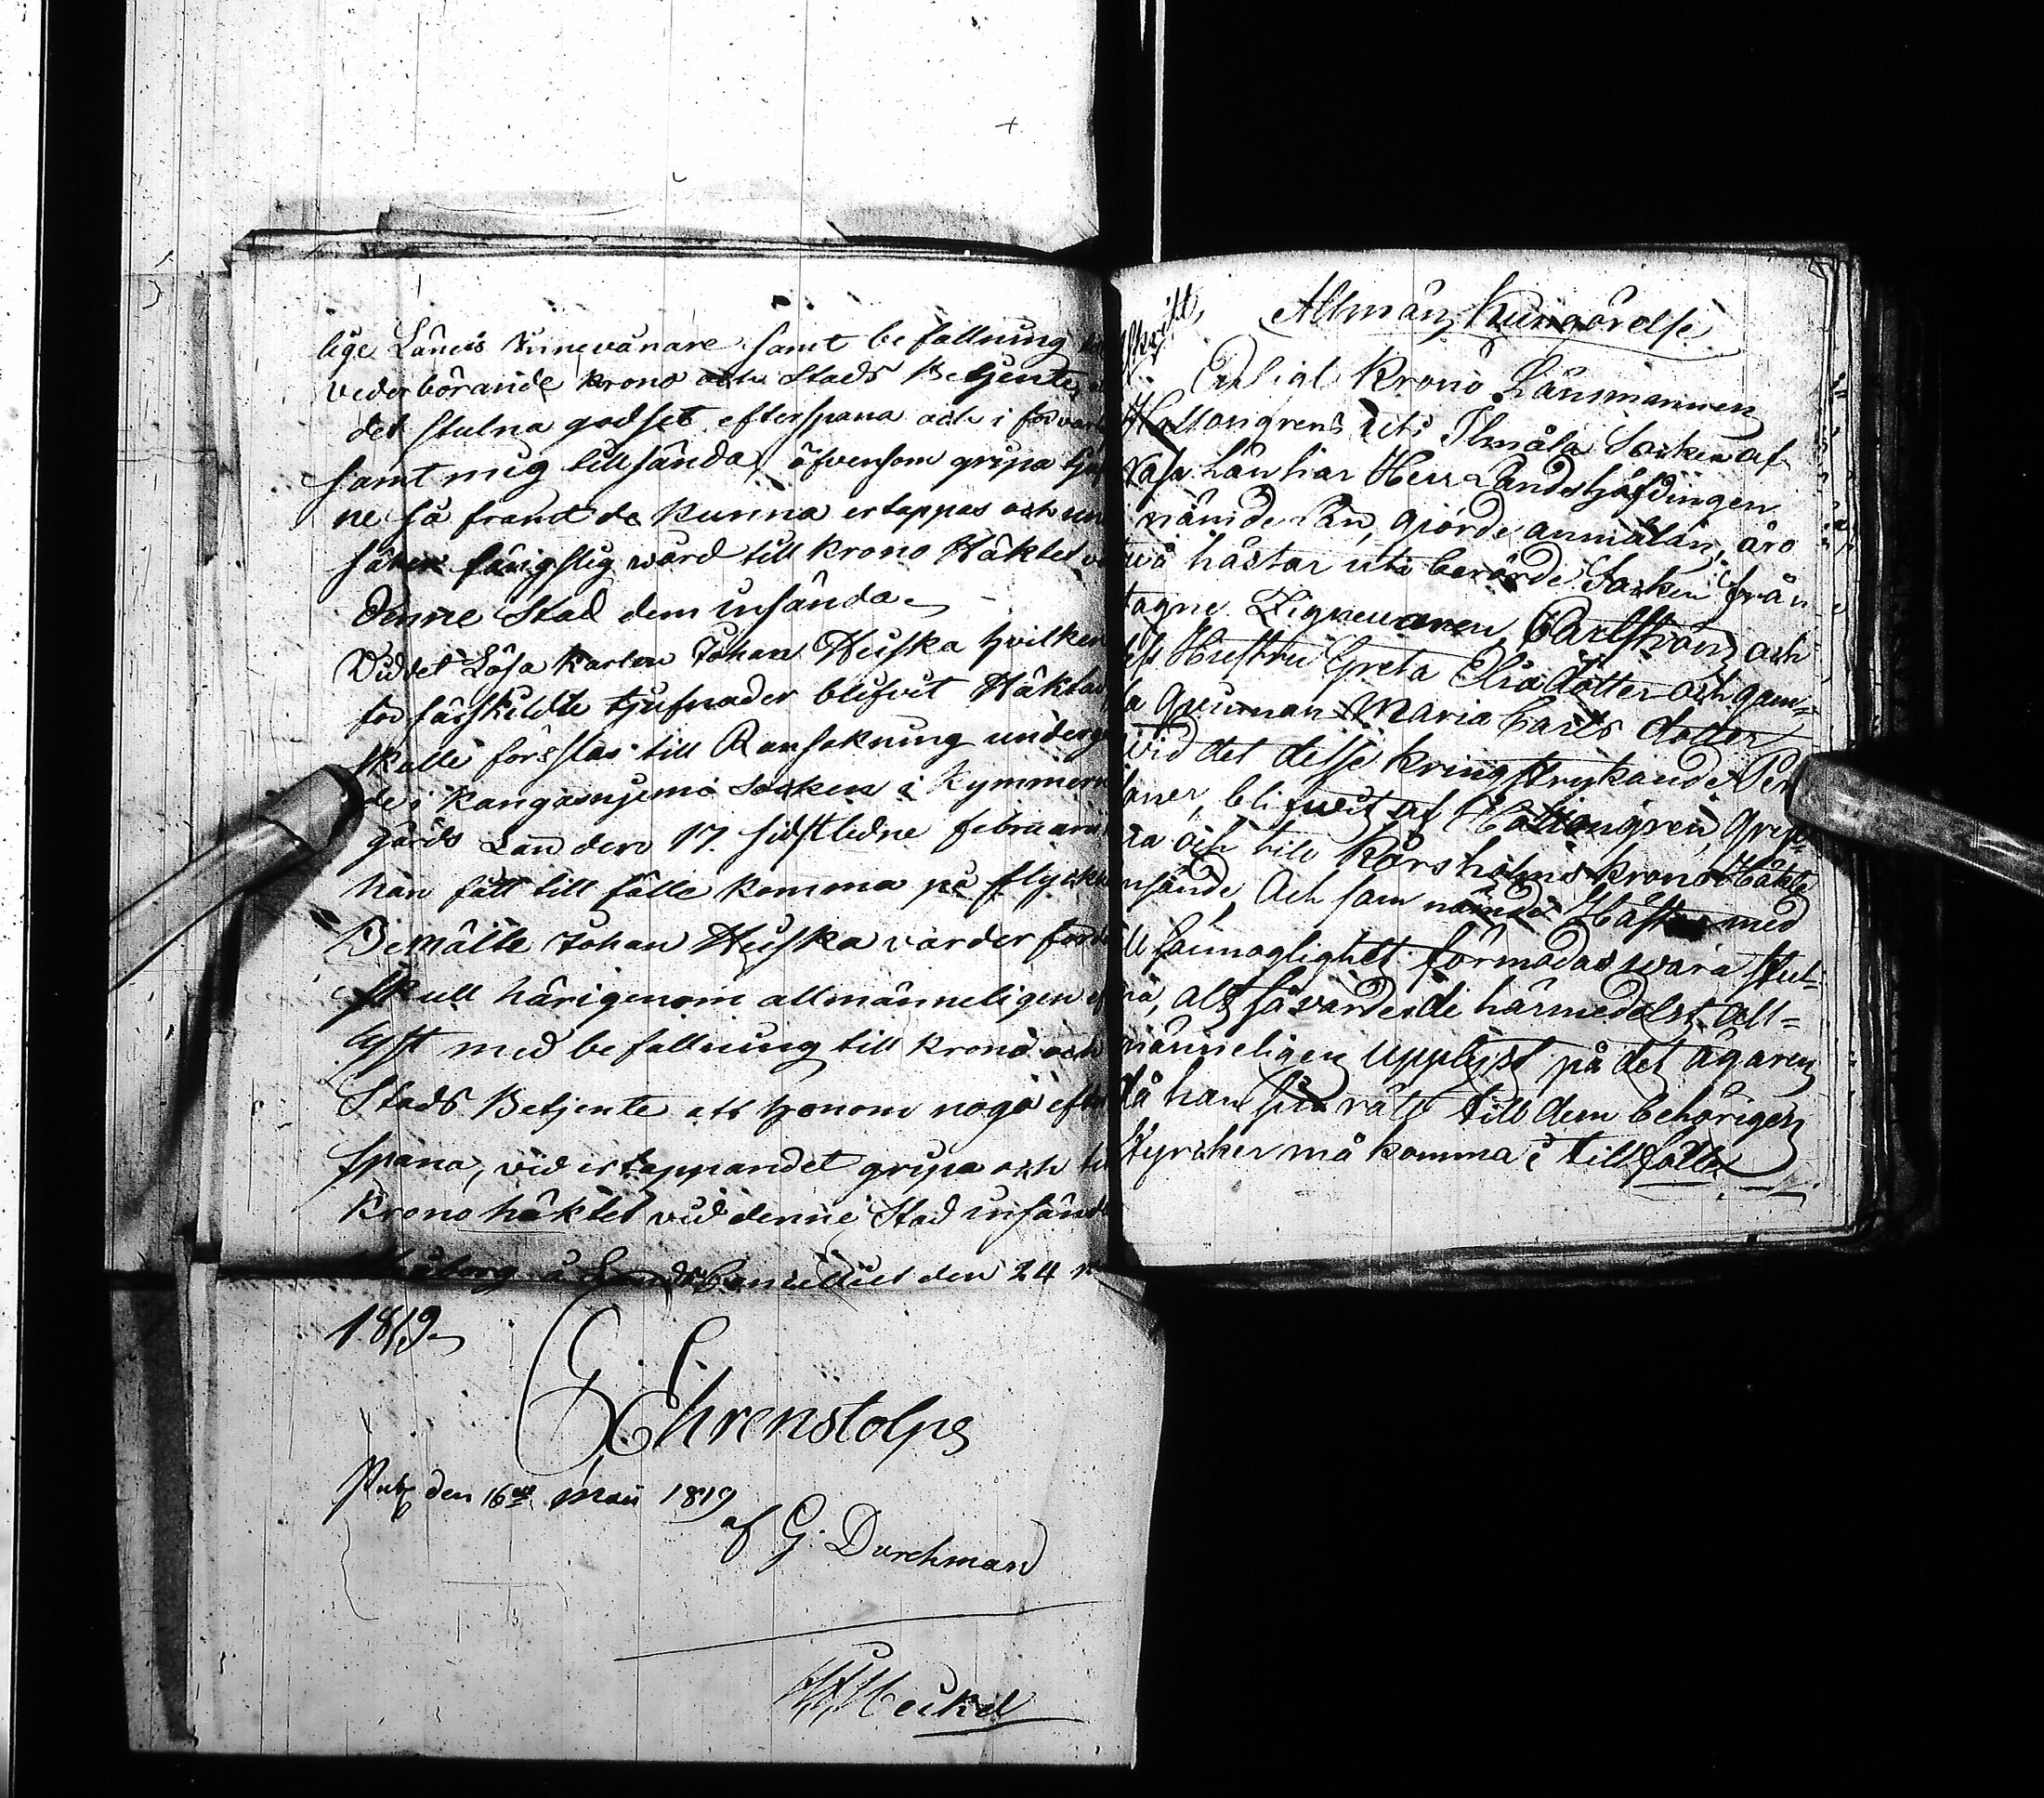 lige Länets Innevånare samt befallning
vederbörande Krono och Stads Betjente,
det stulna godset efterspana och i förvar
samt mig tillsända, äfvensom gripa
ne så framt de kunna ertappas och un
säker fångslig vård till Krono Häktet
denne Stad dem insända
Viddet Lösa Karlen Johan Huska hvilken
för särskildte tjufnader blifvit Häktad
skulle förestas till Ransakning underg
de i Kangasnjemi Socken i Kymmene
gårds Län den 17 sidstledne februari
han fått tillfälle komma på flykt
Bemälte Johan Huska varder för
skull härigenom allmänneligen ef
lyst med befallning till Krono och
Stads Betjente att honom noga efter
spana, vid ertappandet gripa och til
Krono häktet vid denne Stad insända
å Lands Cancelliet den 24
1819
Ehrenstolpe
Publ den 16de Maii 1819
af G. Durchman
Allmän Kungörelse
Enligt Krono Länsmannen
uti Ilmåla Socken af
Vasa Län hos Herr Landshöfdingen
i nämnde Län, gjorde anmälan, äro
två hästar uti berörde Socken från
tagne Zigenaren Carlström och
dess Hustru Greta Elia dotter och gam=
la qvinnan Maria Carls dotter
vid det desse kringstrykande Per
soner, blifwit af Gripe
na och till Korsholms Krono Häkte
insände, Och som nämnde Hästar med
all sannoglighet förmodas wara stul=
na, altså varde de härmedelst all=
männeligen upplyst på det ägaren
då han sin rätt till dem behörigen
styrcker må komma i tillfälle